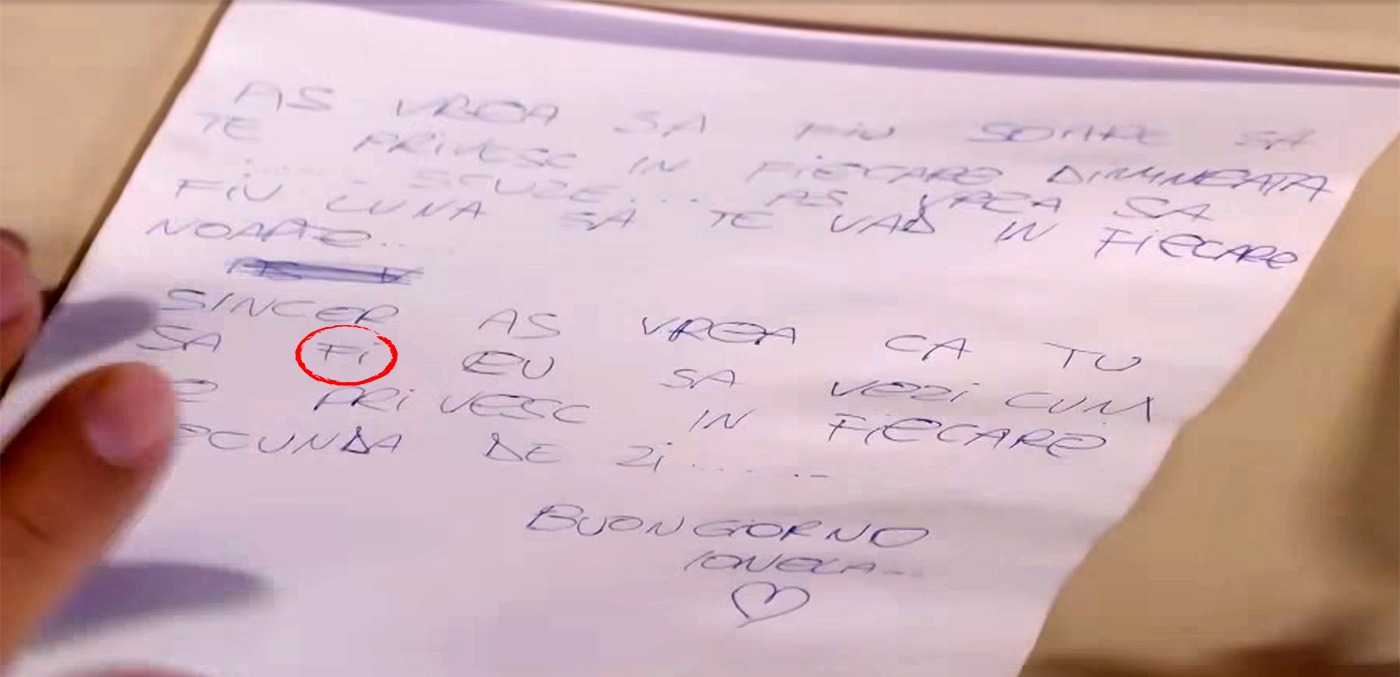 AS VREA SA FIU SOARE SA
TE PRIVESC IN FIECARE DIMINEATA
...... SCUZE.... AS VREA SA
FIU LUNA SA TE VAD IN FIECARE
NOAPTE...
SINCER AS VREA CA TU
SA Fi EU SA VEZI CUM
PRIVESC IN FIECARE
DE ZI ........
BUONGIORNO
IONELA...